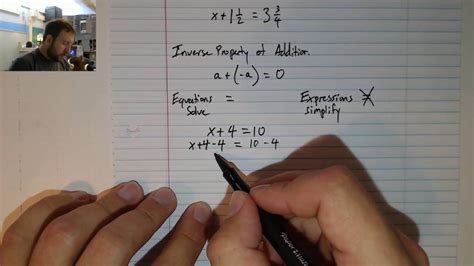 x + 1 1/2 = 3 3/4
Inverse Property of Addition
a + (-a) = 0
Equations = Expressions ≠
Solve simplify
x + 4 = 10
x + 4 - 4 = 10 - 4